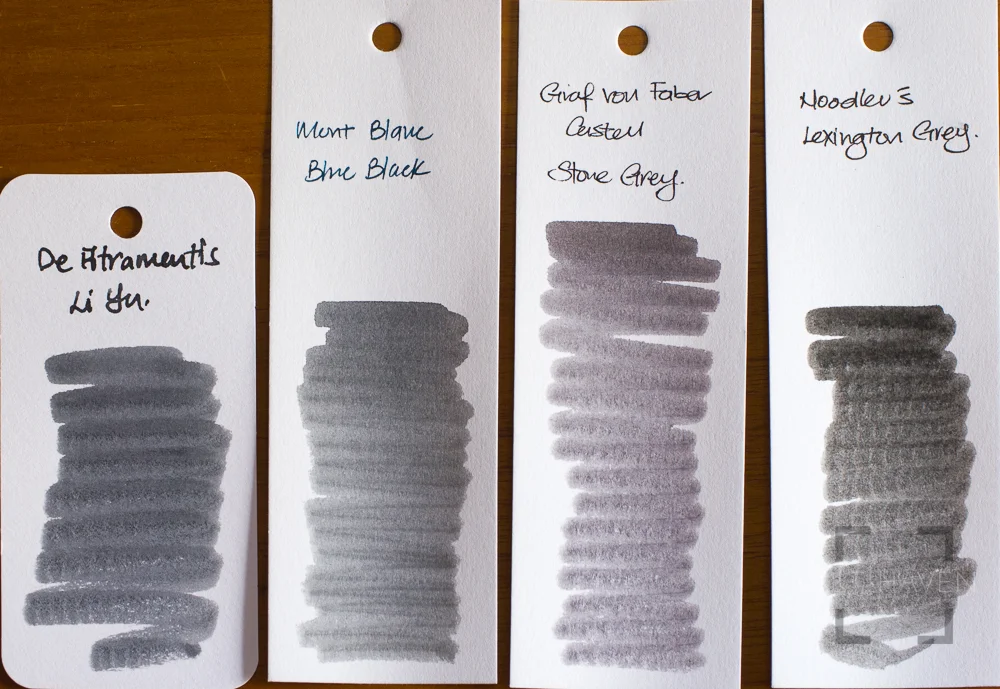 De Atramentis
Li Yu.
Mont Blanc
Blue Black
Graf von Faber
Castell
Stone Grey.
Noodler's
Lexington Grey.